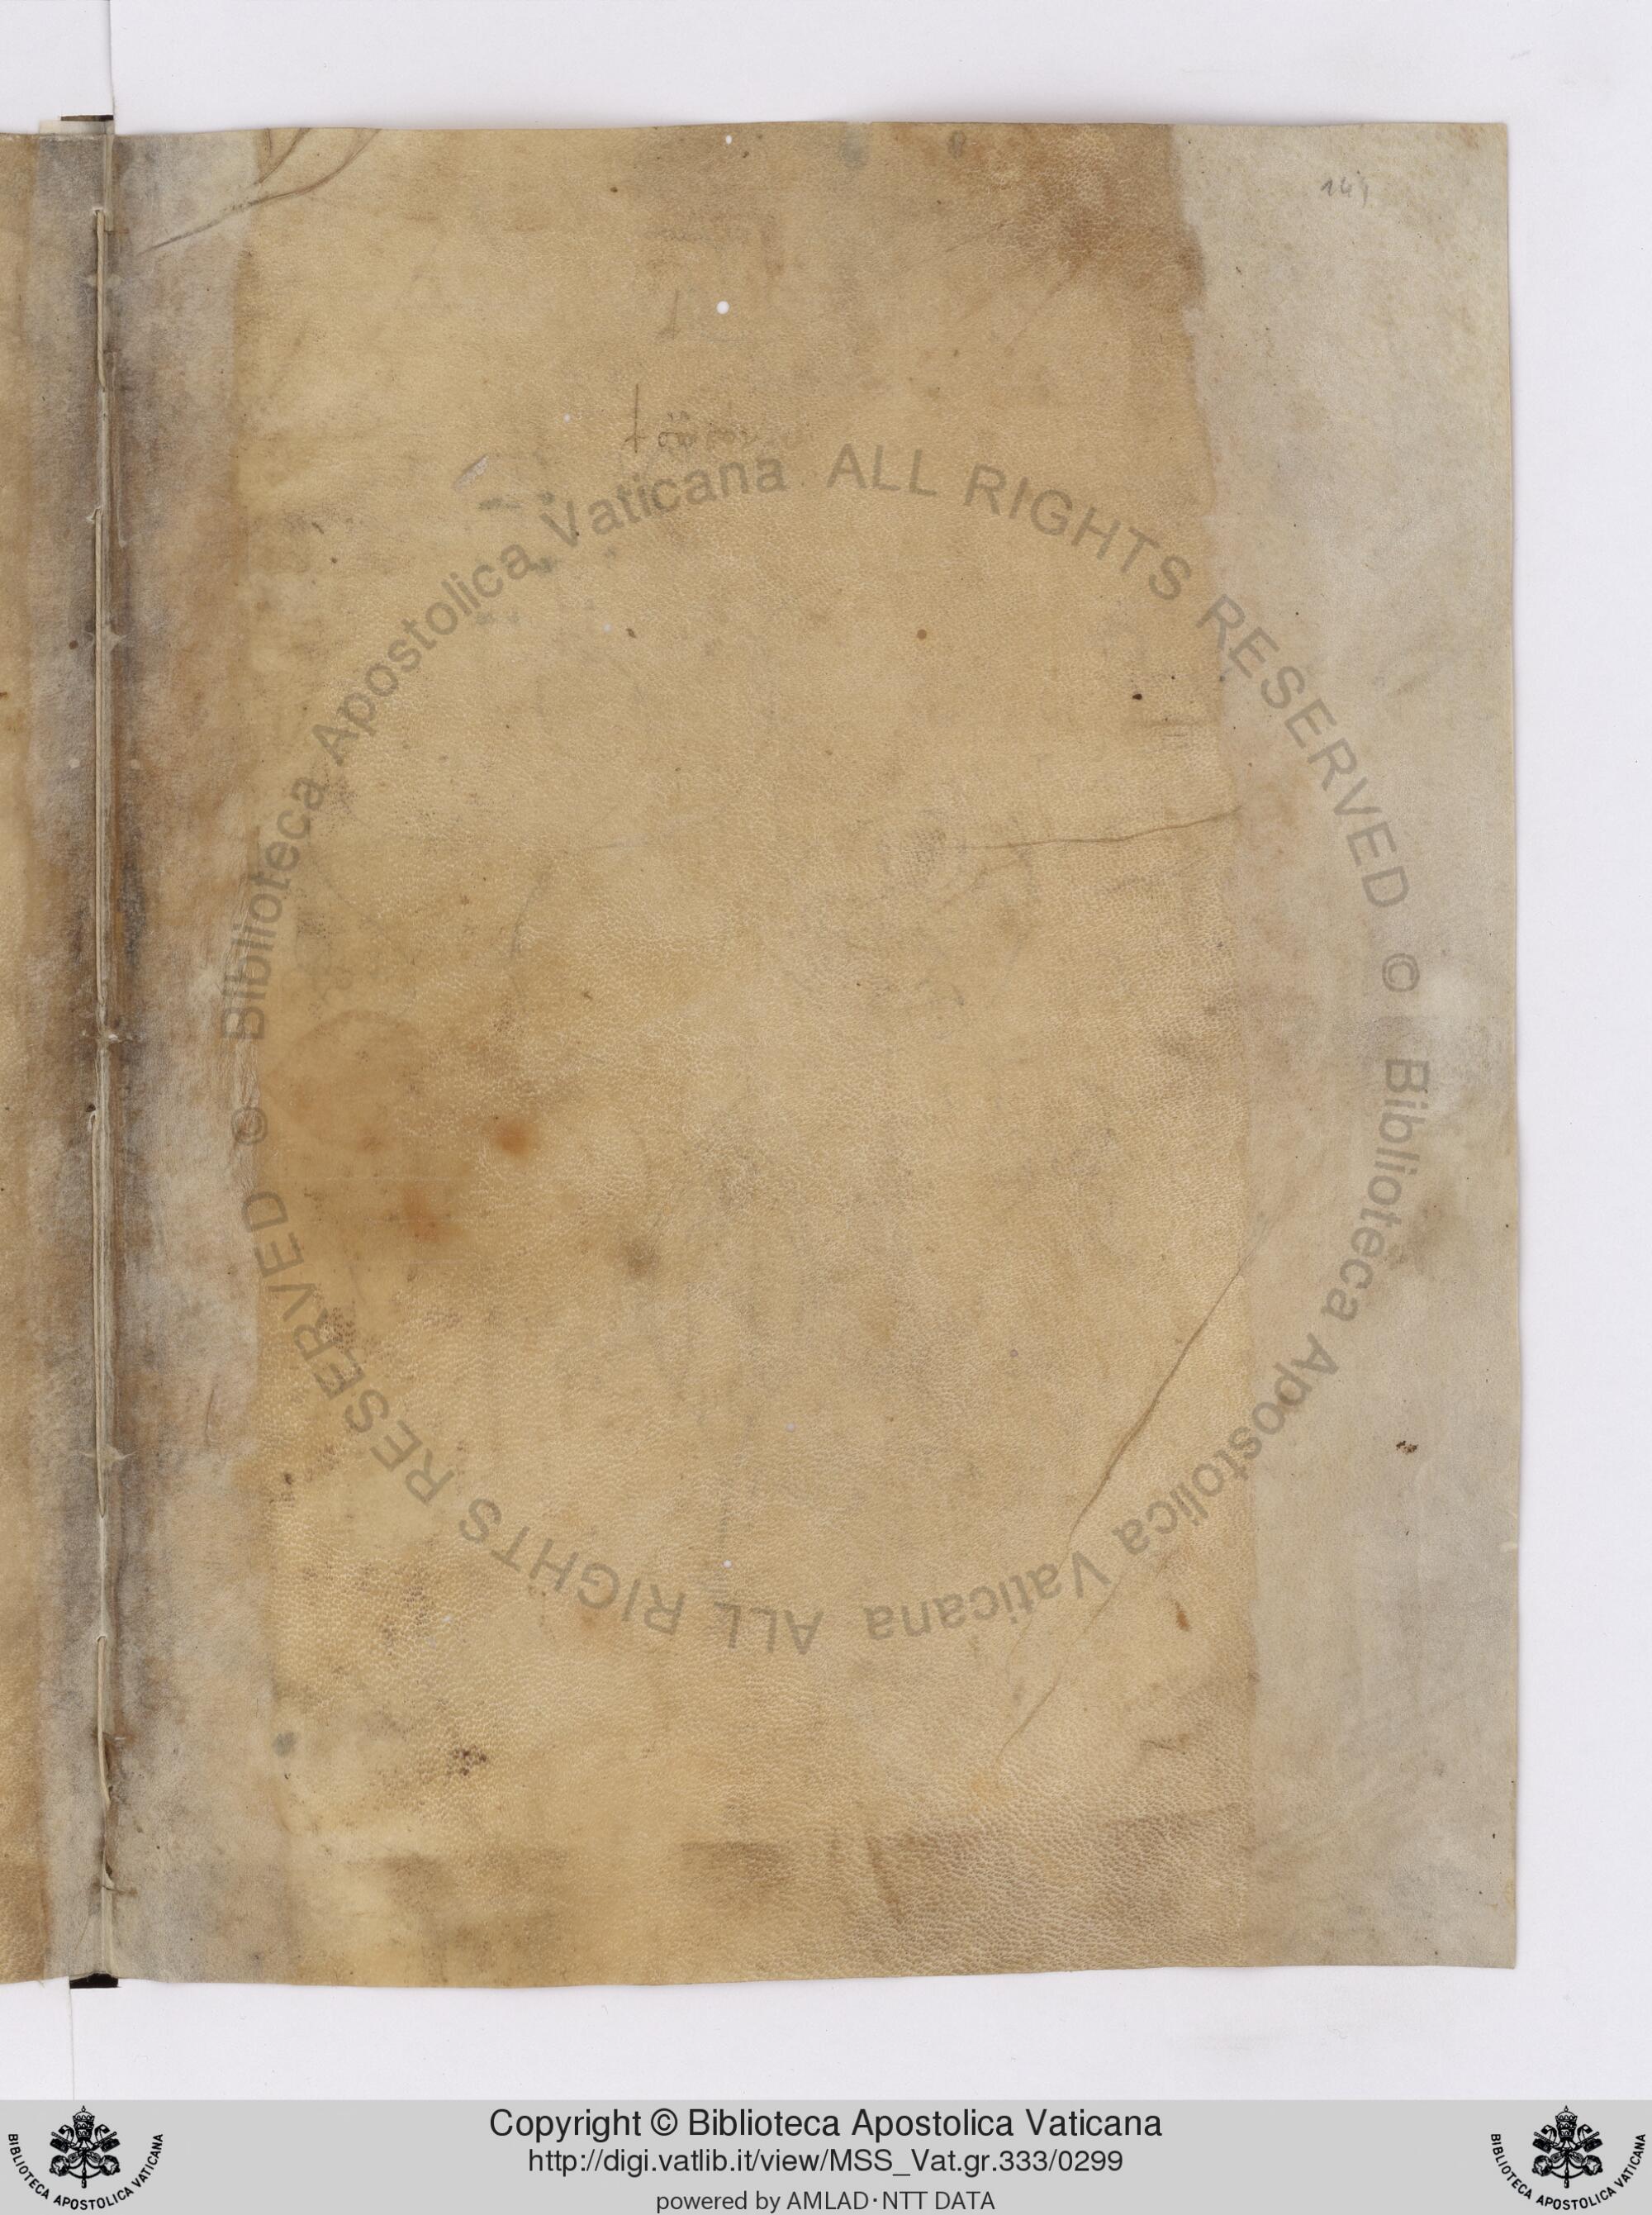 Biblioteca Apostolica Vaticana ALL RIGHTS RESERVED ©
Biblioteca Apostolica Vaticana ALL RIGHTS RESERVED ©
Copyright © Biblioteca Apostolica Vaticana
http://digi.vatlib.it/view/MSS_Vat.gr.333/0299
powered by AMLAD·NTT DATA
BIBLIOTECA APOSTOLICA VATICANA
BIBLIOTECA APOSTOLICA VATICANA